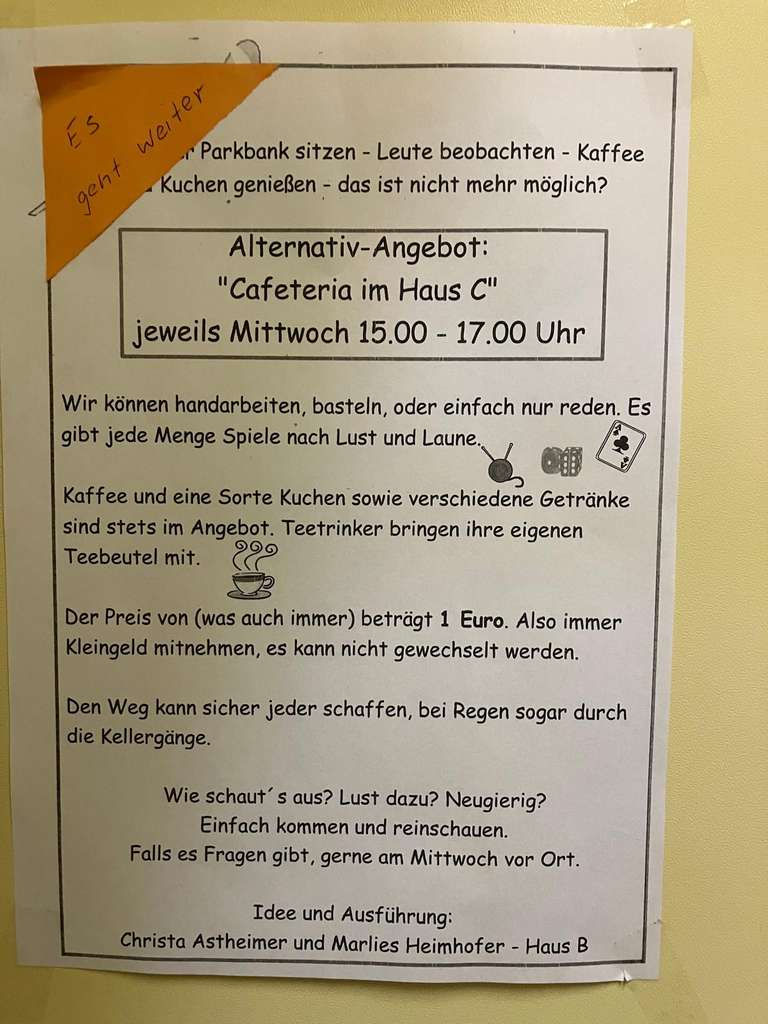 Es
geht weiter
Parkbank sitzen - Leute beobachten - Kaffee
Kuchen genießen - das ist nicht mehr möglich?
Alternativ-Angebot:
"Cafeteria im Haus C"
jeweils Mittwoch 15.00 - 17.00 Uhr
Wir können handarbeiten, basteln, oder einfach nur reden. Es
gibt jede Menge Spiele nach Lust und Laune.
Kaffee und eine Sorte Kuchen sowie verschiedene Getränke
sind stets im Angebot. Teetrinker bringen ihre eigenen
Teebeutel mit.
Der Preis von (was auch immer) beträgt 1 Euro. Also immer
Kleingeld mitnehmen, es kann nicht gewechselt werden.
Den Weg kann sicher jeder schaffen, bei Regen sogar durch
die Kellergänge.
Wie schaut´s aus? Lust dazu? Neugierig?
Einfach kommen und reinschauen.
Falls es Fragen gibt, gerne am Mittwoch vor Ort.
Idee und Ausführung:
Christa Astheimer und Marlies Heimhofer - Haus B